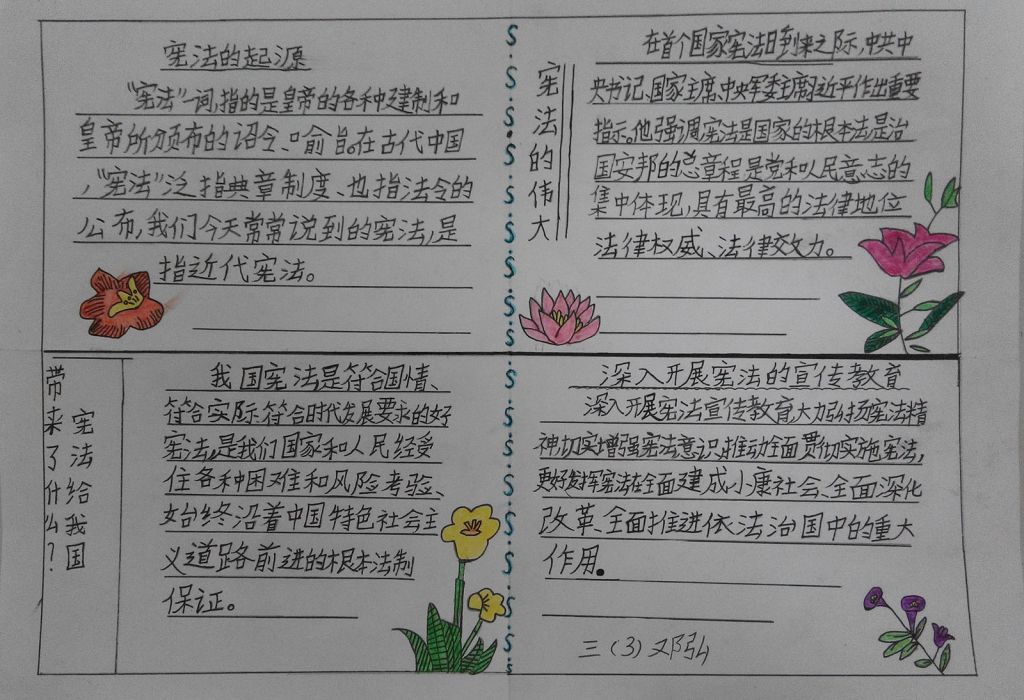 宪法的起源
“宪法”一词,指的是皇帝的各种建制和
皇帝所颁布的诏令、口俞旨。在古代中国
,“宪法”泛指典章制度、也指法令的
公布,我们今天常常说到的宪法,是
指近代宪法。
宪法的伟大
在首个国家宪法日到来之际,中共中
央书记、国家主席、中央军委主席习近平作出重要
指示。他强调宪法是国家的根本法是治
国安邦的总章程是党和人民意志的
集中体现,具有最高的法律地位
法律权威、法律效力。
宪法给我国
带来了什么?
我国宪法是符合国情、
符合实际、符合时代发展要求的好
宪法,是我们国家和人民经受
住各种困难和风险考验、
始终沿着中国特色社会主
义道路前进的根本法制
保证。
深入开展宪法的宣传教育
深入开展宪法宣传教育,大力弘扬宪法精
神,切实增强宪法意识,推动全面贯彻实施宪法,
更好发挥宪法在全面建成小康社会、全面深化
改革、全面推进依法治国中的重大
作用.
三(3)邓弘